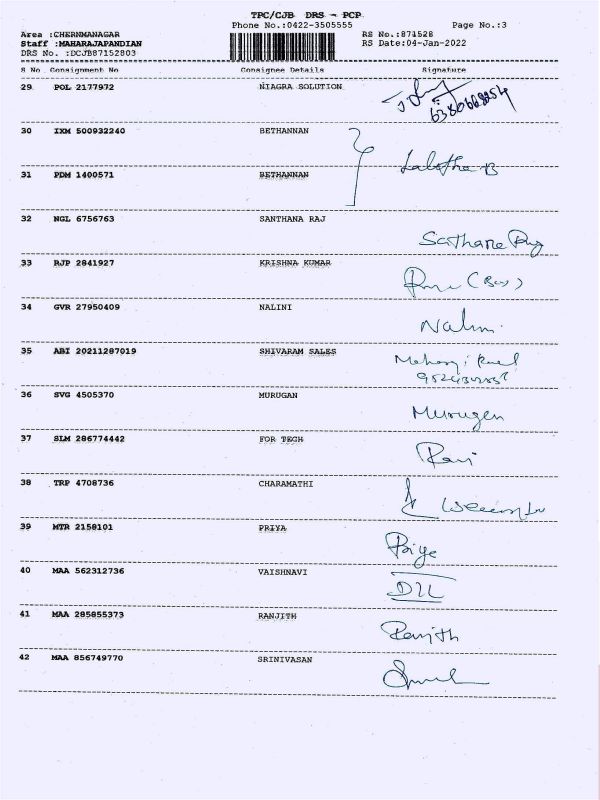 TPC/CJB DRS - PCP
Phone No.:0422-3505555 Page No.:3
Area :CHERNMANAGAR RS No.:871528
Staff :MAHARAJAPANDIAN RS Date:04-Jan-2022
DRS No. :DCJB87152803
S No. Consignment No Consignee Details Signature
29 POL 2177972 NIAGRA SOLUTION
30 IXM 500932240 BETHANNAN
31 PDM 1400571 BETHANNAN
32 NGL 6756763 SANTHANA RAJ
33 RJP 2841927 KRISHNA KUMAR
34 GVR 27950409 NALINI
35 ABI 20211287019 SHIVARAM SALES
36 SVG 4505370 MURUGAN
Murugen
37 SLM 286774442 FOR TECH
Ravi
38 TRP 4708736 CHARAMATHI
39 MTR 2158101 PRIYA
Priye
40 MAA 562312736 VAISHNAVI
41 MAA 285855373 RANJITH
Ranjith
42 MAA 856749770 SRINIVASAN